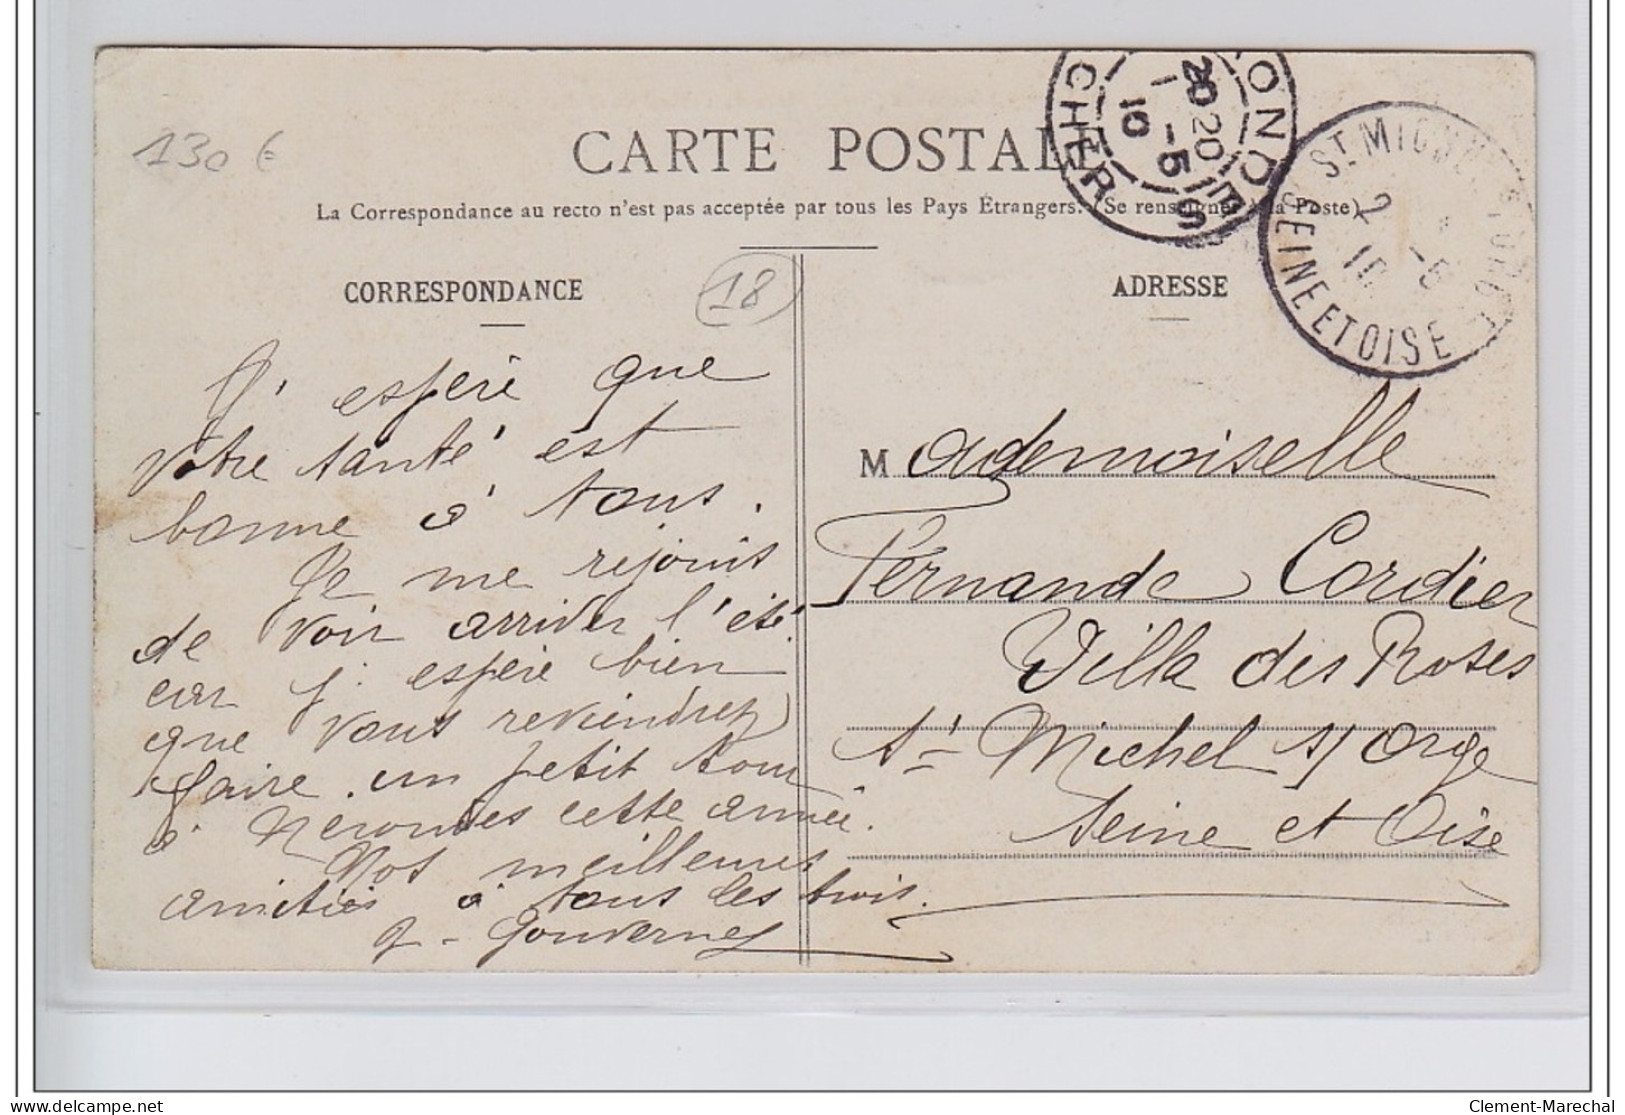 130 €
CARTE POSTALE
La Correspondance au recto n'est pas acceptée par tous les Pays Étrangers. (Se renseigner à la Poste)
CORRESPONDANCE
18
J' espère que
votre santé est
bonne à tous.
Je me rejouis
de voir arriver l'été
car j' espère bien
que vous reviendrez
faire un petit tour
à Nerondes cette année.
Nos meilleures
amitiés à tous les trois.
Gouvernes
ADRESSE
ONDES
CHER
20 20
1 - 5
10
ST MICHEL
2 - 5
10
SEINE ET OISE
Mademoiselle
Fernande Cordier
Villa des Roses
St Michel s/ Orge
Seine et Oise
delcampe.net
Clement-Marechal